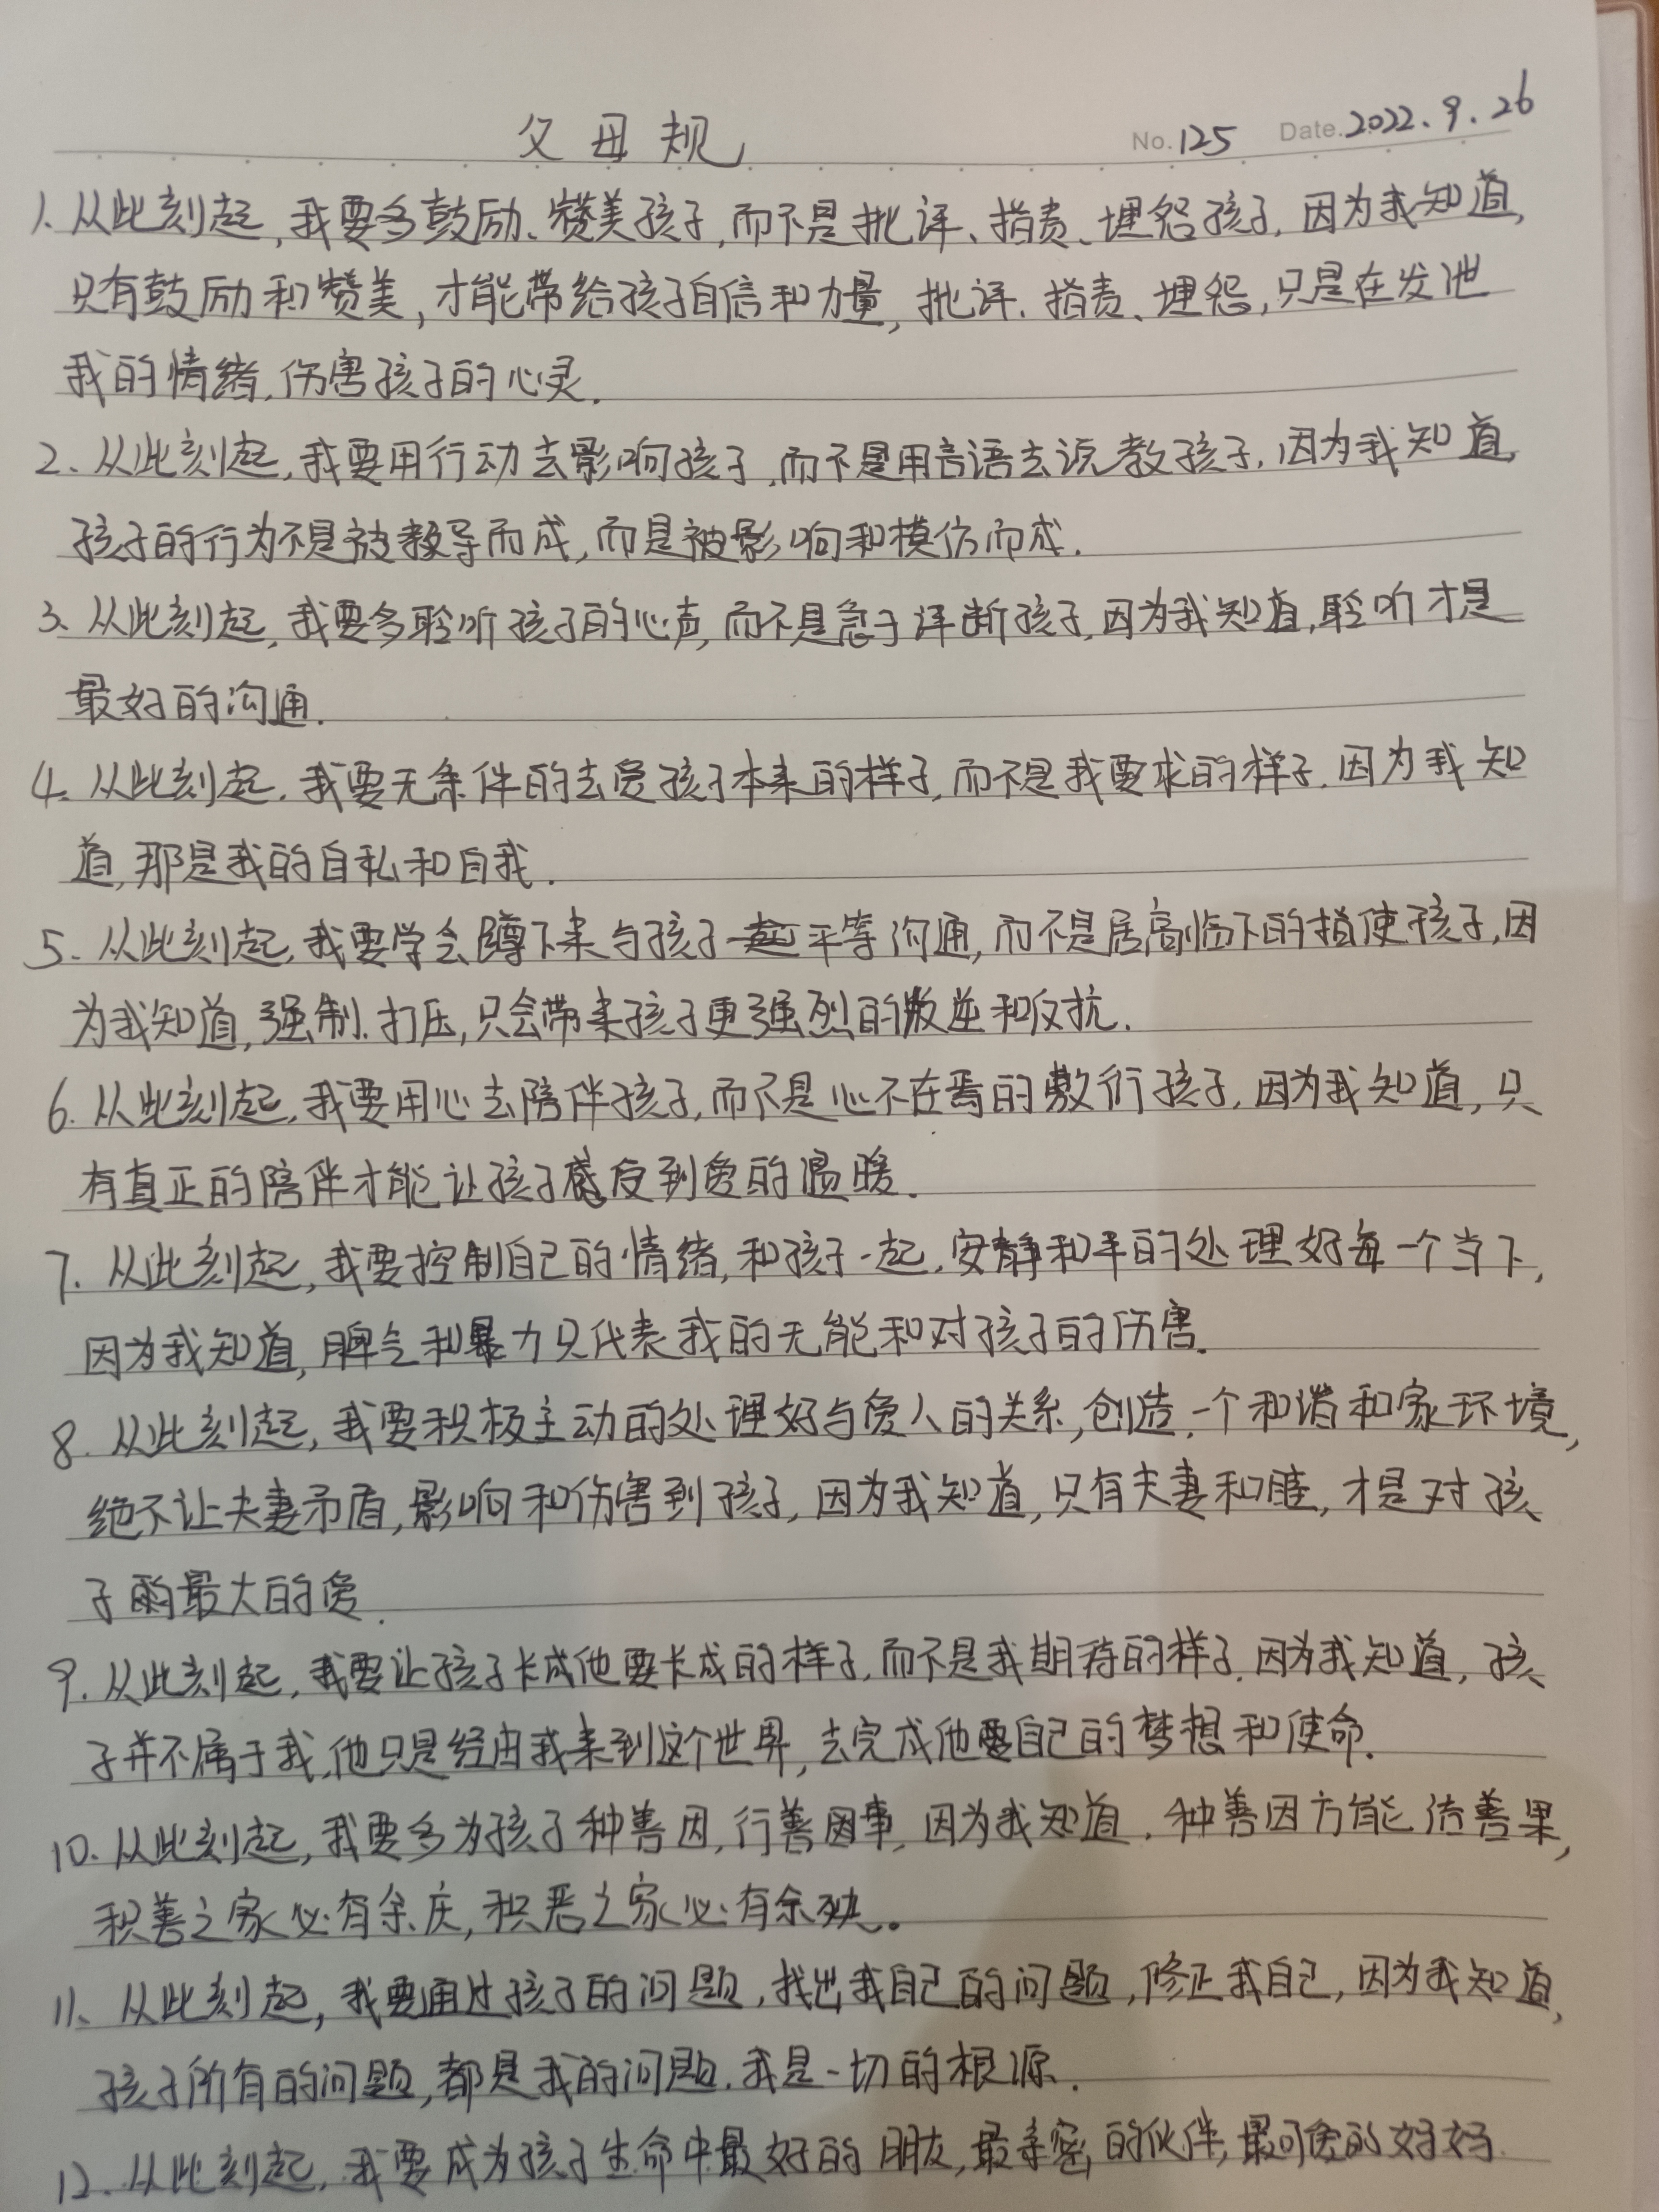 父母规 No.125 Date.2022.9.26
1、从此刻起,我要多鼓励、赞美孩子,而不是批评、指责、埋怨孩子,因为我知道,
只有鼓励和赞美,才能带给孩子自信和力量,批评、指责、埋怨,只是在发泄
我的情绪,伤害孩子的心灵.
2、从此刻起,我要用行动去影响孩子,而不是用言语去说教孩子,因为我知道,
孩子的行为不是被教导而成,而是被影响和模仿而成.
3、从此刻起,我要多聆听孩子的心声,而不是急于评断孩子,因为我知道,聆听才是
最好的沟通.
4、从此刻起,我要无条件的去爱孩子本来的样子,而不是我要求的样子,因为我知
道,那是我的自私和自我.
5、从此刻起,我要学会蹲下来与孩子一起平等沟通,而不是居高临下的指使孩子,因
为我知道,强制、打压,只会带来孩子更强烈的叛逆和反抗.
6、从此刻起,我要用心去陪伴孩子,而不是心不在焉的敷衍孩子,因为我知道,只
有真正的陪伴才能让孩子感受到爱的温暖.
7、从此刻起,我要控制自己的情绪,和孩子一起,安静和平的处理好每一个当下,
因为我知道,脾气和暴力只代表我的无能和对孩子的伤害.
8、从此刻起,我要积极主动的处理好与爱人的关系,创造一个和谐和家环境,
绝不让夫妻矛盾,影响和伤害到孩子,因为我知道,只有夫妻和睦,才是对孩
子的最大的爱.
9、从此刻起,我要让孩子长成他要长成的样子,而不是我期待的样子,因为我知道,孩
子并不属于我,他只是经由我来到这个世界,去完成他自己的梦想和使命.
10、从此刻起,我要多为孩子种善因,行善事,因为我知道,种善因方能结善果,
积善之家必有余庆,积恶之家必有余殃。
11、从此刻起,我要通过孩子的问题,找出我自己的问题,修正我自己,因为我知道,
孩子所有的问题,都是我的问题,我是一切的根源.
12、从此刻起,我要成为孩子生命中最好的朋友,最亲密的伙伴,最可爱的好妈